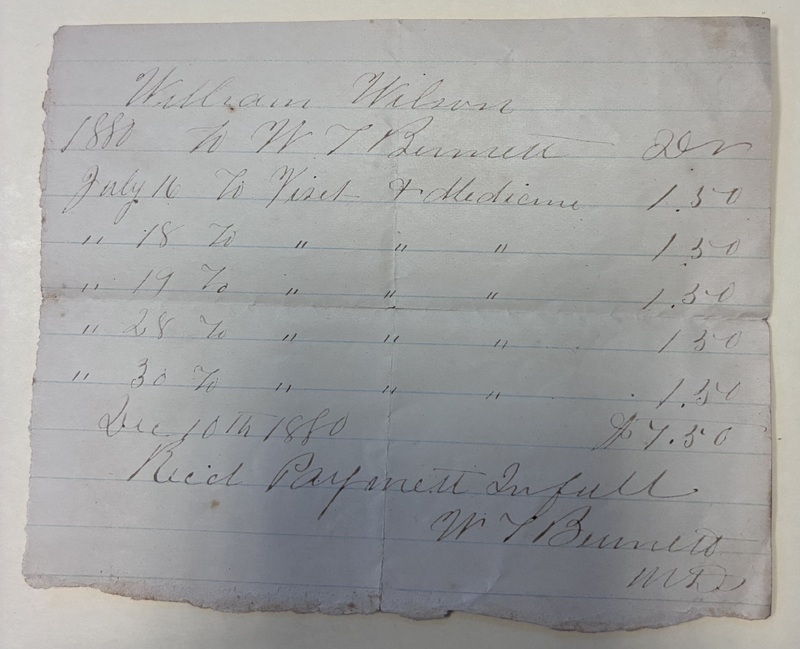 William Wilson
1880 To W T Bennett Dr
July 16 To Visit & Medicine 1.50
" 18 To " " " 1.50
" 19 To " " " 1.50
" 28 To " " " 1.50
" 30 To " " " 1.50
Dec 10th 1880 $7.50
Rec'd Payment In full
W T Bennett
M D